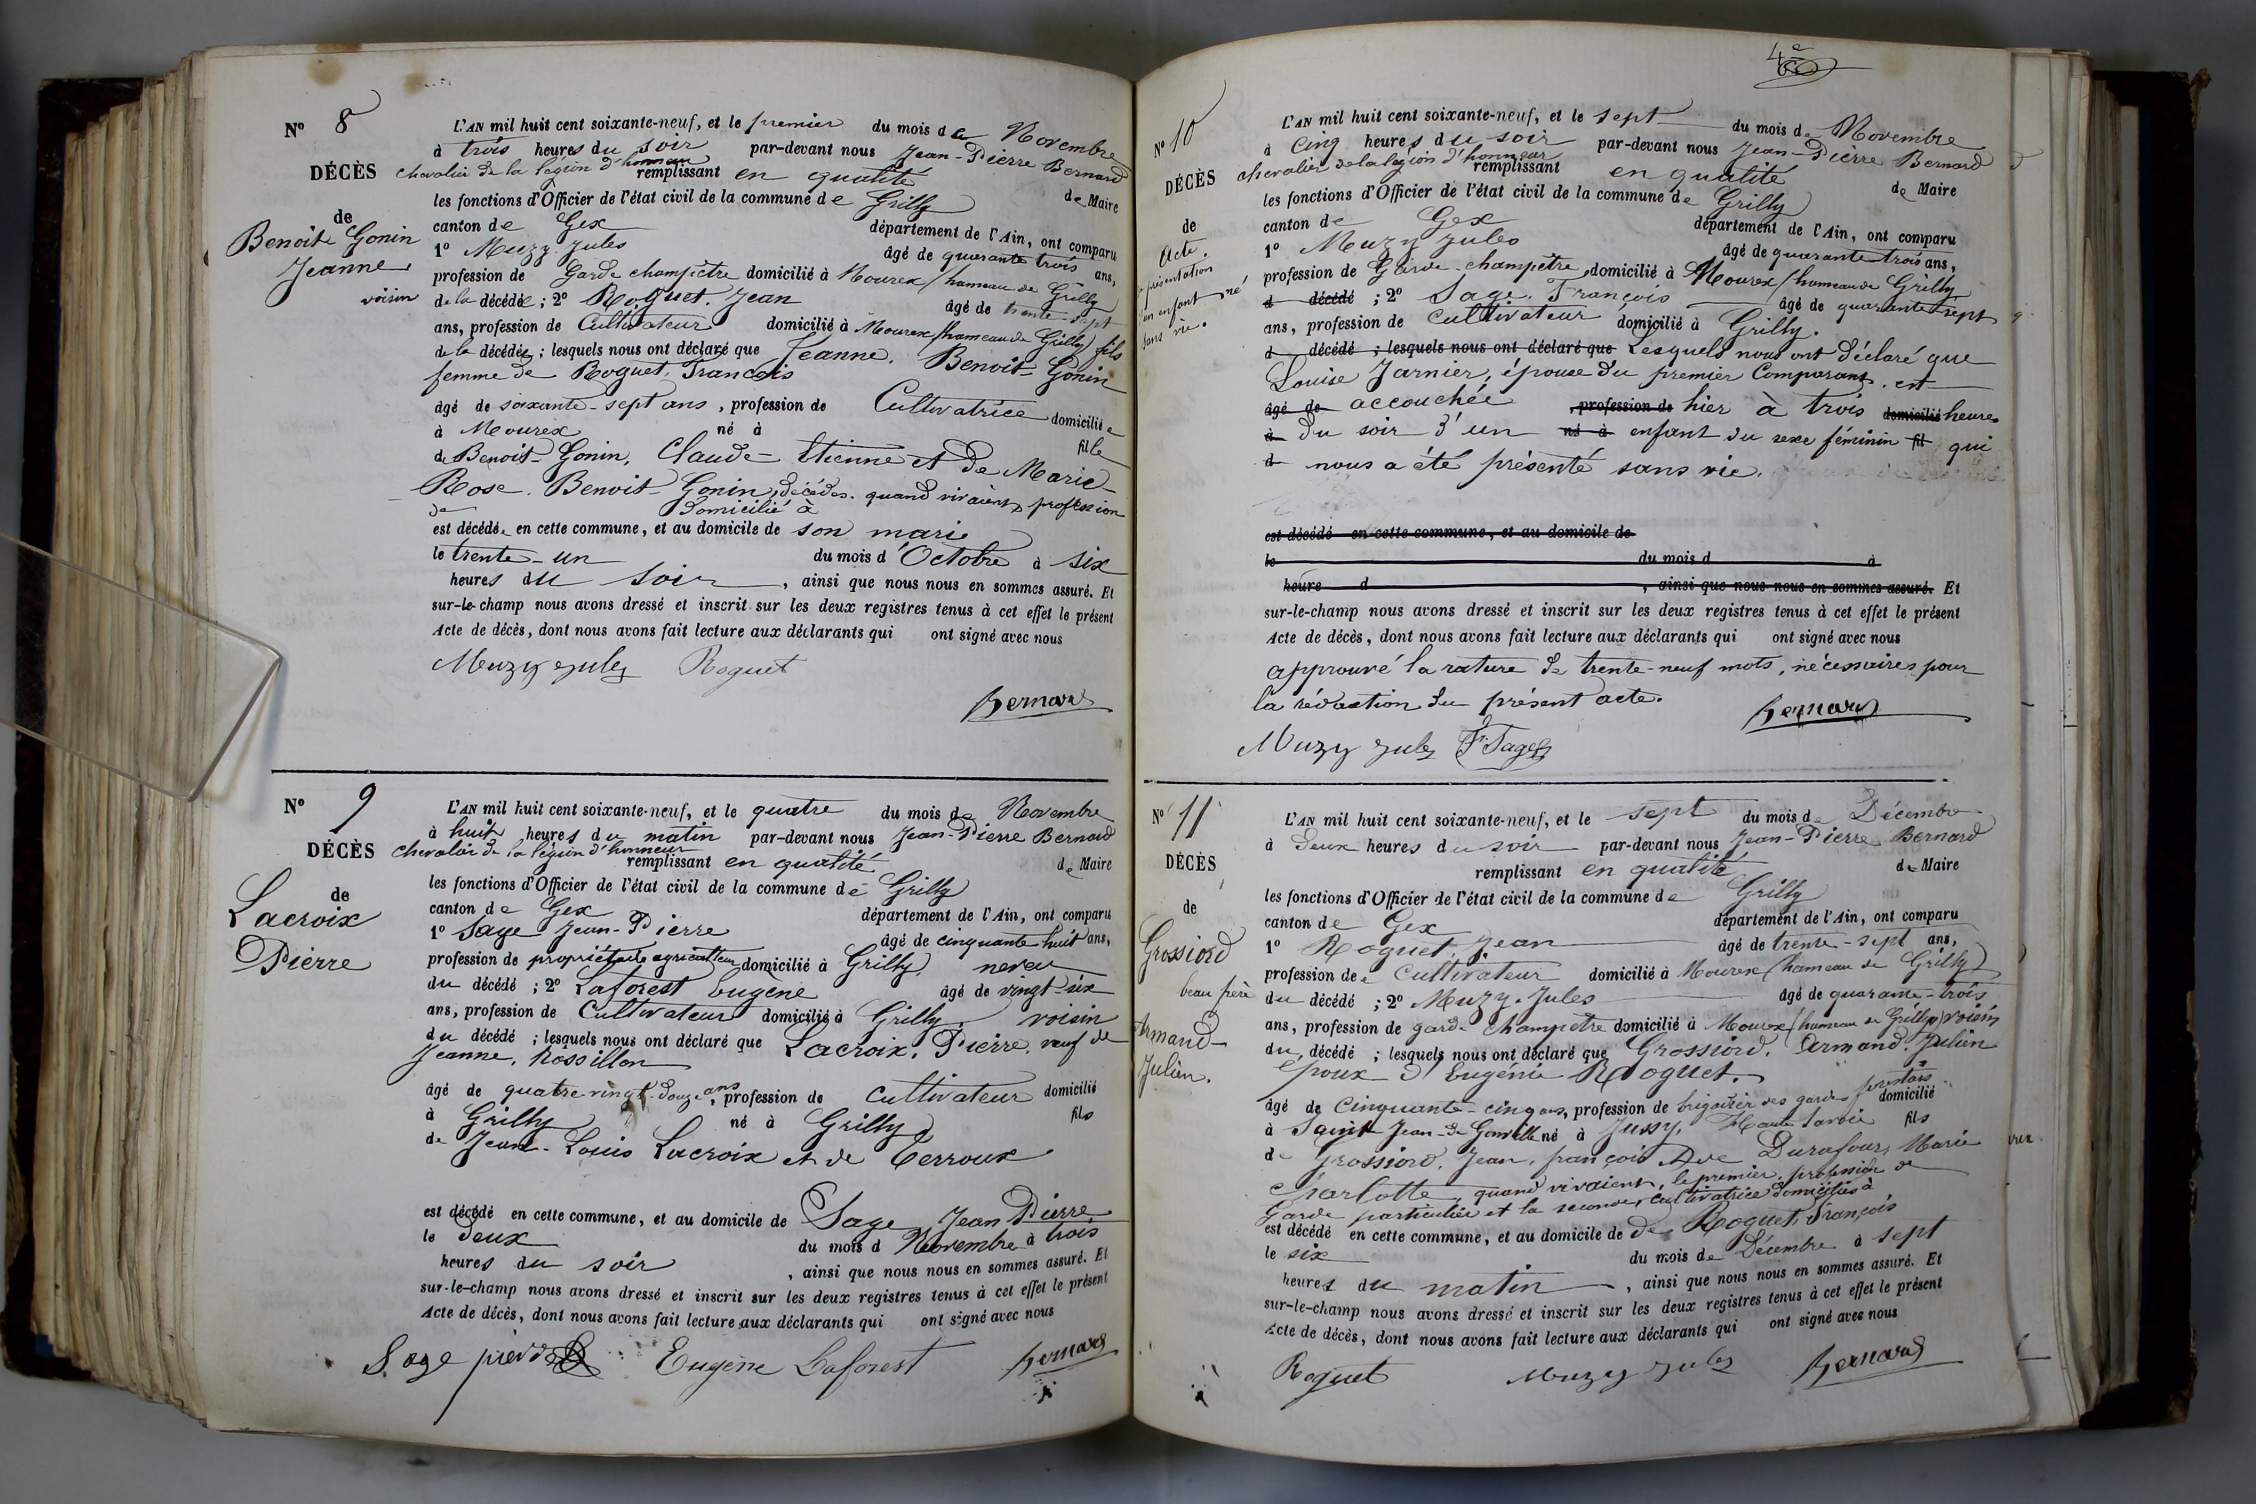 N° 8
DÉCÈS
de
Benoit Gonin
Jeanne
voisin
L'AN mil huit cent soixante-neuf, et le premier du mois de Novembre
à trois heures du soir par-devant nous Jean-Pierre Bernard
chevalier de la légion d'honneur remplissant en qualité de Maire
les fonctions d'Officier de l'état civil de la commune de Grilly
canton de Gex département de l'Ain, ont comparu
1° Muzy Jules âgé de quarante trois ans,
profession de Garde champêtre domicilié à Mourex (hameau de Grilly
de la décédée ; 2° Roguet. Jean âgé de trente-sept
ans, profession de Cultivateur domicilié à Mourex (hameau de Grilly) fils
de la décédée ; lesquels nous ont déclaré que Jeanne. Benoit-Gonin
femme de Roguet, François
âgé de soixante-sept ans, profession de Cultivatrice domiciliée
à Mourex né à fille
de Benoit-Gonin, Claude-Etienne et de Marie-
Rose. Benoit-Gonin, décédés. quand vivaient profession
de domicilié à
est décédée en cette commune, et au domicile de son mari
le trente-un du mois d'Octobre à six
heures du soir, ainsi que nous nous en sommes assuré. Et
sur-le-champ nous avons dressé et inscrit sur les deux registres tenus à cet effet le présent
Acte de décès, dont nous avons fait lecture aux déclarants qui ont signé avec nous
Muzy Jules Roguet
Bernard
N° 9
DÉCÈS
de
Lacroix
Pierre
L'AN mil huit cent soixante-neuf, et le quatre du mois de Novembre
à huit heures du matin par-devant nous Jean-Pierre Bernard
chevalier de la légion d'honneur remplissant en qualité de Maire
les fonctions d'Officier de l'état civil de la commune de Grilly
canton de Gex département de l'Ain, ont comparu
1° Sage Jean-Pierre âgé de cinquante huit ans,
profession de propriétaire agriculteur domicilié à Grilly, neveu
du décédé ; 2° Laforest Eugene âgé de vingt-six
ans, profession de Cultivateur domicilié à Grilly, voisin
du décédé ; lesquels nous ont déclaré que Lacroix, Pierre, veuf de
Jeanne, Rossillon
âgé de quatre vingt-douze ans, profession de cultivateur domicilié
à Grilly né à Grilly fils
de Jean-Louis Lacroix et de Cerroux
est décédé en cette commune, et au domicile de Sage Jean Pierre
le deux du mois d Novembre à trois
heures du soir, ainsi que nous nous en sommes assuré. Et
sur-le-champ nous avons dressé et inscrit sur les deux registres tenus à cet effet le présent
Acte de décès, dont nous avons fait lecture aux déclarants qui ont signé avec nous
Sage pierre Eugène Laforest Bernard
4e
N° 10
DÉCÈS
de
Acte.
présentation
un enfant né
sans vie.
L'AN mil huit cent soixante-neuf, et le sept du mois de Novembre
à cinq heures du soir par-devant nous Jean-Pierre Bernard
chevalier de la légion d'honneur remplissant en qualité de Maire
les fonctions d'Officier de l'état civil de la commune de Grilly
canton de Gex département de l'Ain, ont comparu
1° Muzy Jules âgé de quarante trois ans,
profession de Garde-champêtre, domicilié à Mourex (hameau de Grilly
d décédé ; 2° Sage. François âgé de quarante sept
ans, profession de cultivateur domicilié à Grilly.
d décédé ; lesquels nous ont déclaré que Lesquels nous ont déclaré que
Louise Jarnier, épouse du premier Comparant, est
âgé de accouchée, profession de hier à trois domicilié heures
à du soir d'un né à enfant du sexe féminin fil qui
d nous a été présenté sans vie.
est décédé en cette commune, et au domicile de
le du mois d à
heure d, ainsi que nous nous en sommes assuré. Et
sur-le-champ nous avons dressé et inscrit sur les deux registres tenus à cet effet le présent
Acte de décès, dont nous avons fait lecture aux déclarants qui ont signé avec nous
approuvé la rature de trente-neuf mots, nécessaires pour
la rédaction du présent acte. Bernard
Muzy Jules F. Sage
N° 11
DÉCÈS
de
Grossiord
beau frère
Armand-
Julien.
L'AN mil huit cent soixante-neuf, et le sept du mois de Décembre
à deux heures du soir par-devant nous Jean-Pierre Bernard
remplissant en qualité de Maire
les fonctions d'Officier de l'état civil de la commune de Grilly
canton de Gex département de l'Ain, ont comparu
1° Roguet, Jean âgé de trente-sept ans,
profession de cultivateur domicilié à Mourex (hameau de Grilly)
du décédé ; 2° Muzy. Jules âgé de quarante-trois
ans, profession de garde champêtre domicilié à Mourex (hameau de Grilly) voisin
du décédé ; lesquels nous ont déclaré que Grossiord. Armand. Julien
époux d'Eugénie Roguet.
âgé de Cinquante-cinq ans, profession de brigadier des gardes forestiers domicilié
à Saint Jean-de Gonville né à Jussy, Haute Savoie fils
de Grossiord, Jean, françois et de Durafour, Marie
Charlotte, quand vivaient, le premier, profession de
Garde particulier et la seconde, cultivatrice domiciliés à
est décédé en cette commune, et au domicile de de Roguet, François
le six du mois de Décembre à sept
heures du matin, ainsi que nous nous en sommes assuré. Et
sur-le-champ nous avons dressé et inscrit sur les deux registres tenus à cet effet le présent
Acte de décès, dont nous avons fait lecture aux déclarants qui ont signé avec nous
Roguet Muzy Jules Bernard